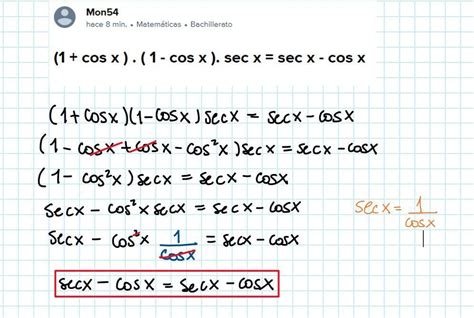 Mon54
hace 8 min. • Matemáticas • Bachillerato
(1 + cos x ) . ( 1 - cos x ). sec x = sec x - cos x
(1+cosx)(1-cosx)secx = secx-cosx
(1 - cosx + cosx - cos²x)secx = secx-cosx
(1- cos²x)secx = secx-cosx
secx - cos²x secx = secx - cosx
secx = 1/cosx
secx - cos²x 1/cosx = secx - cosx
secx - cosx = secx - cosx